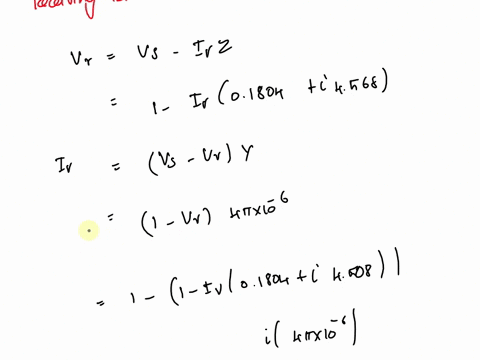 Vr = Vs - IrZ
= 1 - Ir (0.1804 + i 4.568)
Ir = (Vs - Vr) Y
= (1 - Vr) 4π×10^-6
= 1 - (1 - Ir (0.1804 + i 4.508))
i (4π×10^-6)